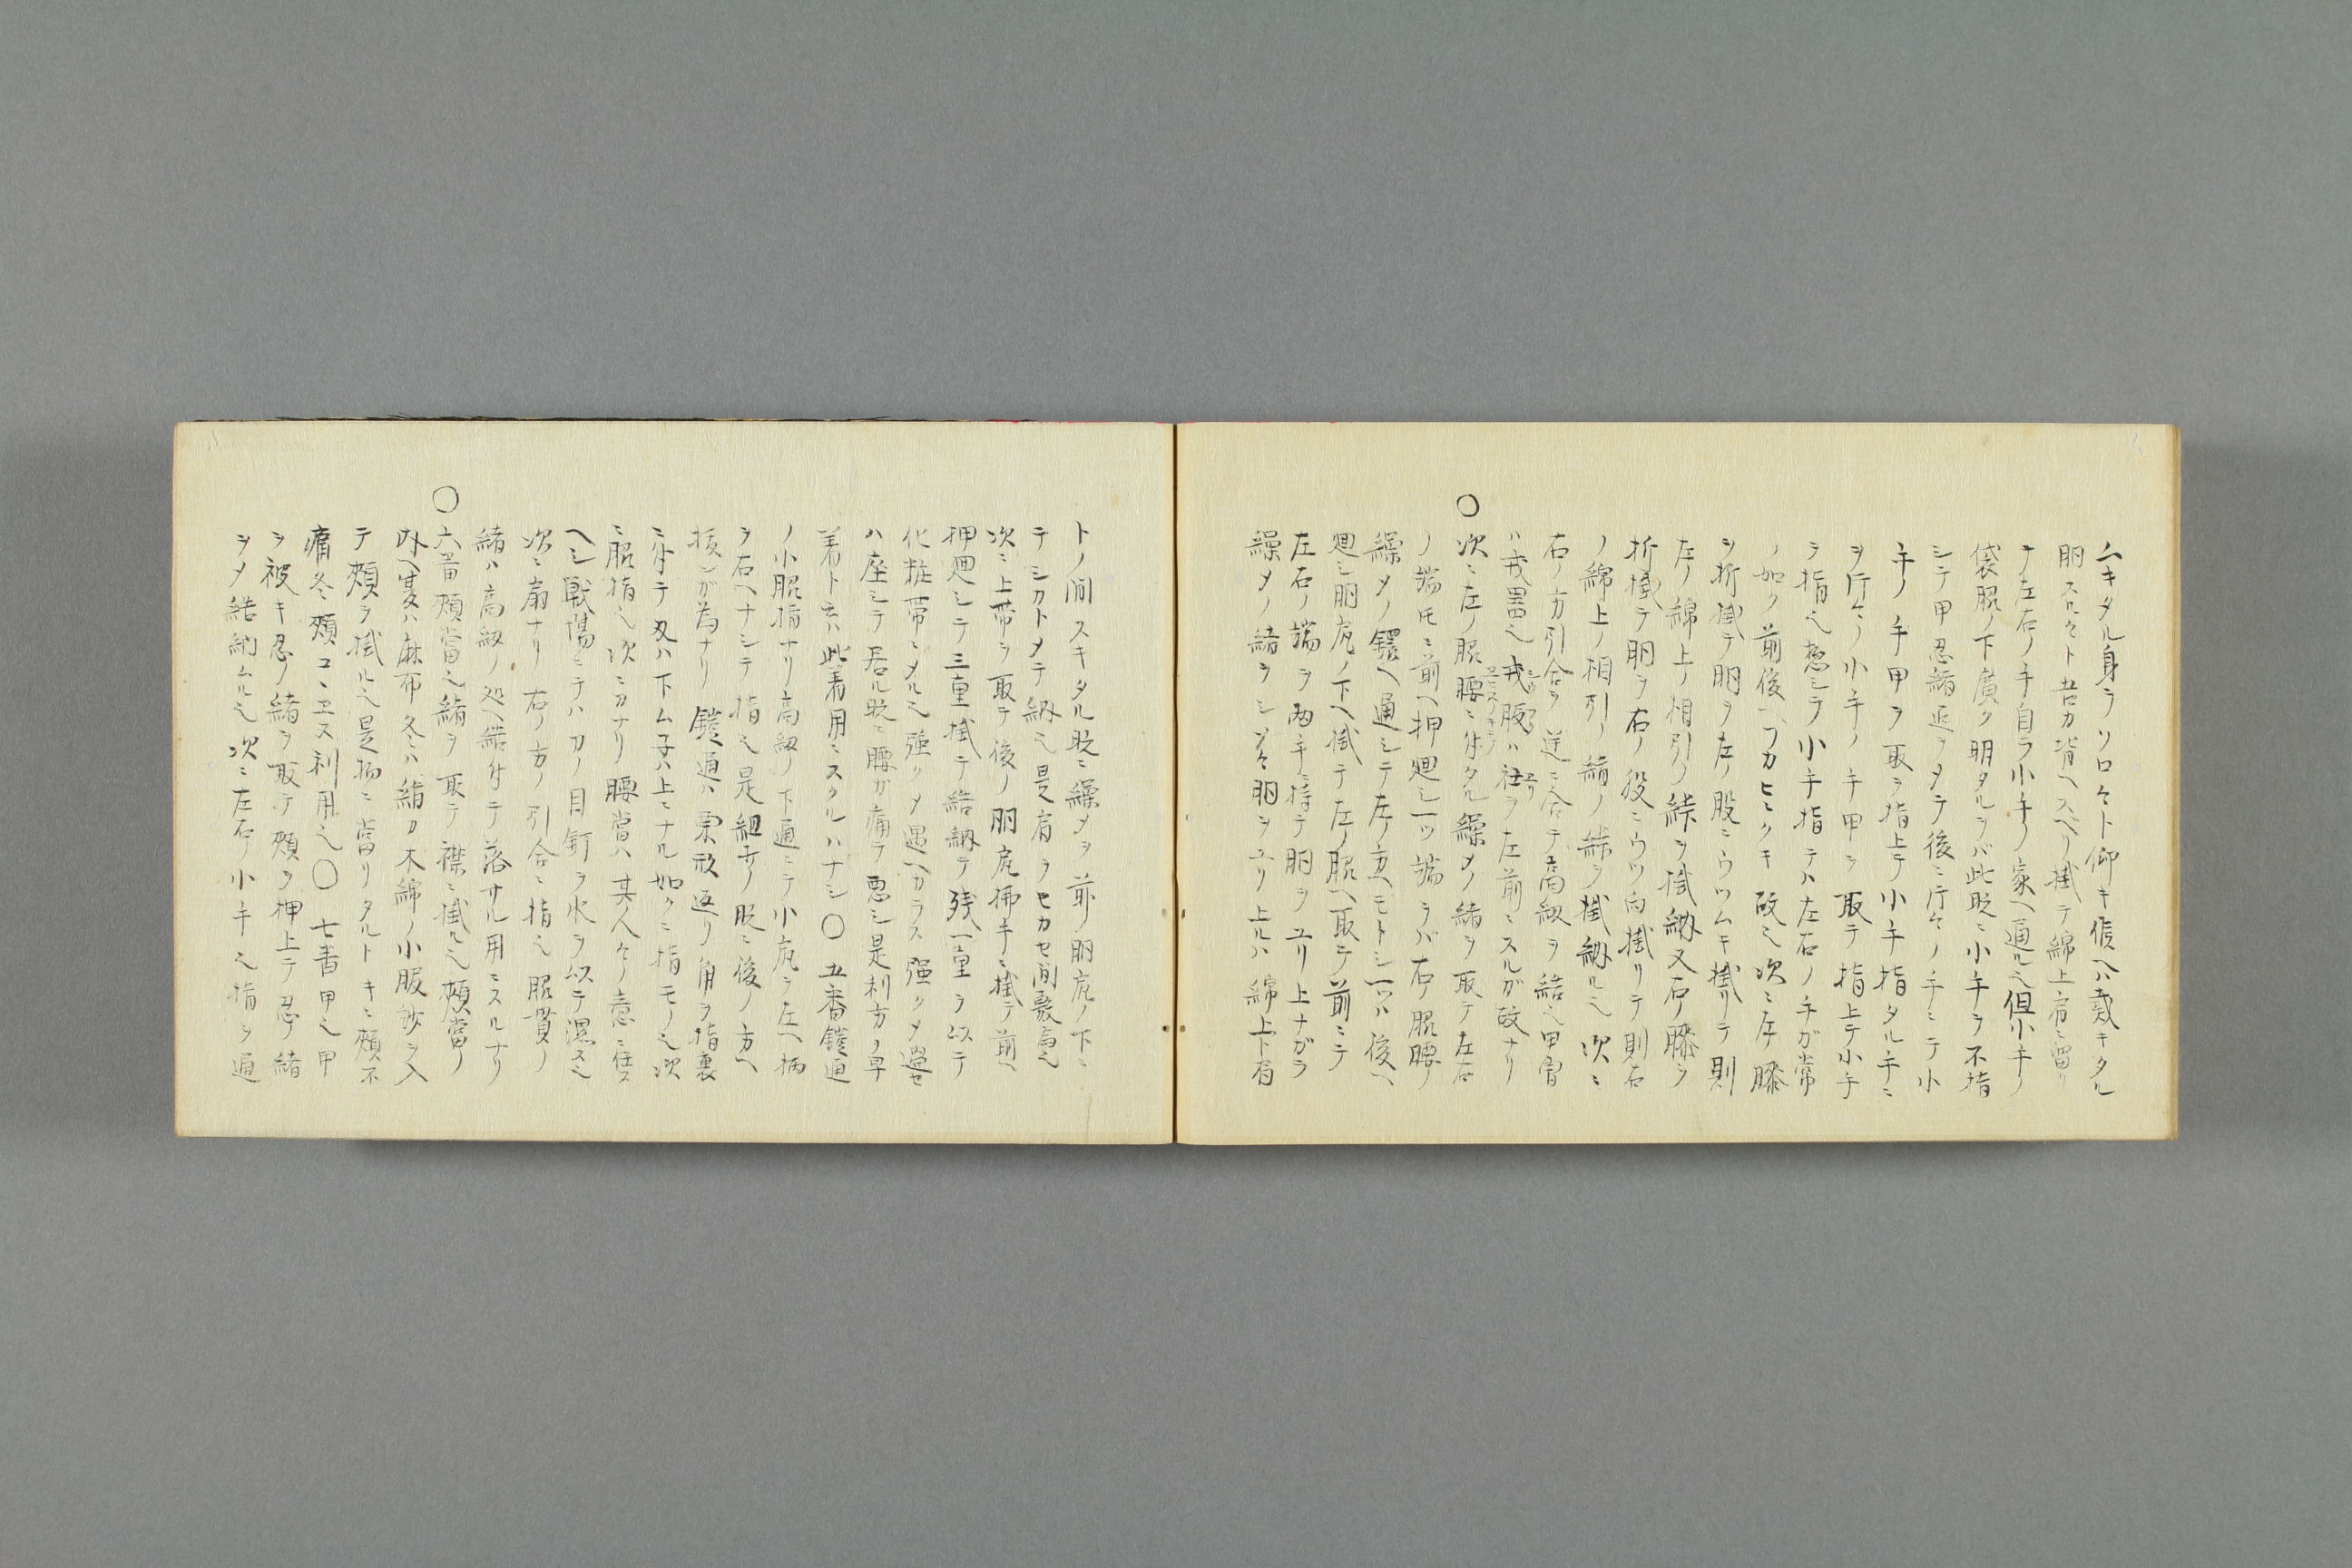 ムキタル身ヲソロ々ト仰キ候ヘハ戴キタル
胴スル々ト吾カ背ヘスベリ掛テ綿上肩ニ留リ
ナ左右ノ手自ラ小手ノ家ヘ通ル也但小手ノ
袋脇ノ下廣ク明タルヲバ此時ニ小手ヲ不指
シテ甲忍緒迄ヲメテ後ニ片々ノ手ニテ小
手ノ手甲ヲ取ラ指上テ小手指タル手ニ
ヲ片々ノ小手ノ手甲ヲ取テ指上テ小手
ヲ指也惣シテ小手指テハ左右ノ手ガ常
ノ如ク前後ヘツカヒニクキ故也次ニ左膝
ヲ折掛テ胴ヲ左ノ股ニウツムキ掛リテ則
左ノ綿上ノ相引ノ緒ヲ掛納又右ノ膝ヲ
折掛テ胴ヲ右ノ役ニウツ向掛リテ則右
ノ綿上ノ相引ノ緒ノ緒ヲ掛納ル也次ニ
右ノ方引合ヲ逆ニ合テ高紐ヲ結也甲冑
ハ戎器也戎服ハ衽ヲ左前ニスルガ故ナリ
○次ニ左ノ脇腰ニ付タル繰メノ緒ヲ取テ左右
ノ端モニ前ヘ押廻シ一ツ端ヲバ右ノ脇腰ノ
繰メノ鐶ヘ通シテ左ノ方ヘモトシ一ツハ後ヘ
廻シ胴尻ノ下ヘ掛テ左ノ脇ヘ取テ前ニテ
左右ノ端ヲ両手ニ持テ胴ヲユリ上ナガラ
繰メノ緒ヲシメ々胴ヲユリ上ルハ綿上下肩
トノ間スキタル時ニ繰メヲ前ノ胴尻ノ下ニ
テシカトメテ納也是肩ヲセカセ間敷為也
次ニ上帯ヲ取テ後ノ胴尻拂手ニ掛テ前ヘ
押廻シテ三重掛テ結納テ残一重ヲ以テ
化粧帯ニメル也強クメ過ヘカラス強クメ過セ
ハ座シテ居ル時ニ腰ガ痛テ悪シ是利方ノ早
着ト云ハ此着用ニスクルハナシ○五番鎧通
ノ小脇指ナリ高紐ノ下通ニテ小尻ヲ左ヘ柄
ヲ右ヘナシテ指也是組サノ時ニ後ノ方ヘ
抜ンガ為ナリ鎧通ハ栗形返リ角ヲ指裏
ニ付テ刄ハ下ム子ハ上ニナル如クニ指モノ也次
ニ脇指也次ニ刀ナリ腰當ハ其人々ノ意ニ任ス
ヘシ戰場ニテハ刀ノ目釘ヲ水ヲ以テ濕ス也
次ニ扇ナリ右ノ方ノ引合ニ指也脇貫ノ
緒ハ高紐ノ処ヘ結付テ落サル用ニスルナリ
○六番頬當也緒ヲ取テ襟ニ掛ル也頬當ノ
内ヘ夏ハ麻布冬ハ絹カ木綿ノ小服紗ヲ入
テ頬ヲ掛ル也是物ニ當リタルトキニ頬不
痛冬頬コヽヱス利用也○七番甲也甲
ヲ被キ忍ノ緒ヲ取テ頬ヲ押上テ忍ノ緒
ヲメ結納ムル也次ニ左右ノ小手也指ヲ通